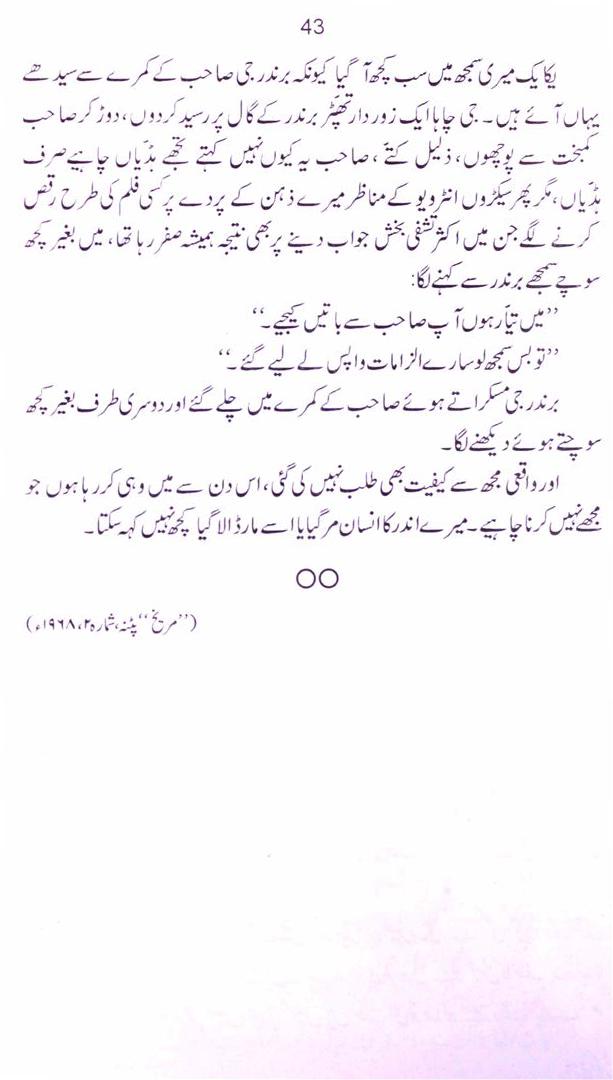 43
یکایک میری سمجھ میں سب کچھ آ گیا کیونکہ برندر جی صاحب کے کمرے سے سیدھے
یہاں آئے ہیں۔ جی چاہا ایک زور دار تھپّڑ برندر کے گال پر رسید کر دوں، دوڑ کر صاحب
کمبخت سے پوچھوں، ذلیل کتّے، صاحب یہ کیوں نہیں کہتے تجھے ہڈیاں چاہیے صرف
ہڈیاں، مگر پھر سیکڑوں انٹرویو کے مناظر میرے ذہن کے پردے پر کسی فلم کی طرح رقص
کرنے لگے جن میں اکثر تشفی بخش جواب دینے پر بھی نتیجہ ہمیشہ صفر رہا تھا، میں بغیر کچھ
سوچے سمجھے برندر سے کہنے لگا:
’’میں تیّار ہوں آپ صاحب سے باتیں کیجیے۔‘‘
’’تو بس سمجھ لو سارے الزامات واپس لے لیے گئے۔‘‘
برندر جی مسکراتے ہوئے صاحب کے کمرے میں چلے گئے اور دوسری طرف بغیر کچھ
سوچتے ہوئے دیکھنے لگا۔
اور واقعی مجھ سے کیفیت بھی طلب نہیں کی گئی، اس دن سے میں وہی کر رہا ہوں جو
مجھے نہیں کرنا چاہیے۔ میرے اندر کا انسان مر گیا یا اسے مار ڈالا گیا کچھ نہیں کہہ سکتا۔
○○
(’’مریخ‘‘ پٹنہ، شمارہ ۲، ۱۹۶۸ء)